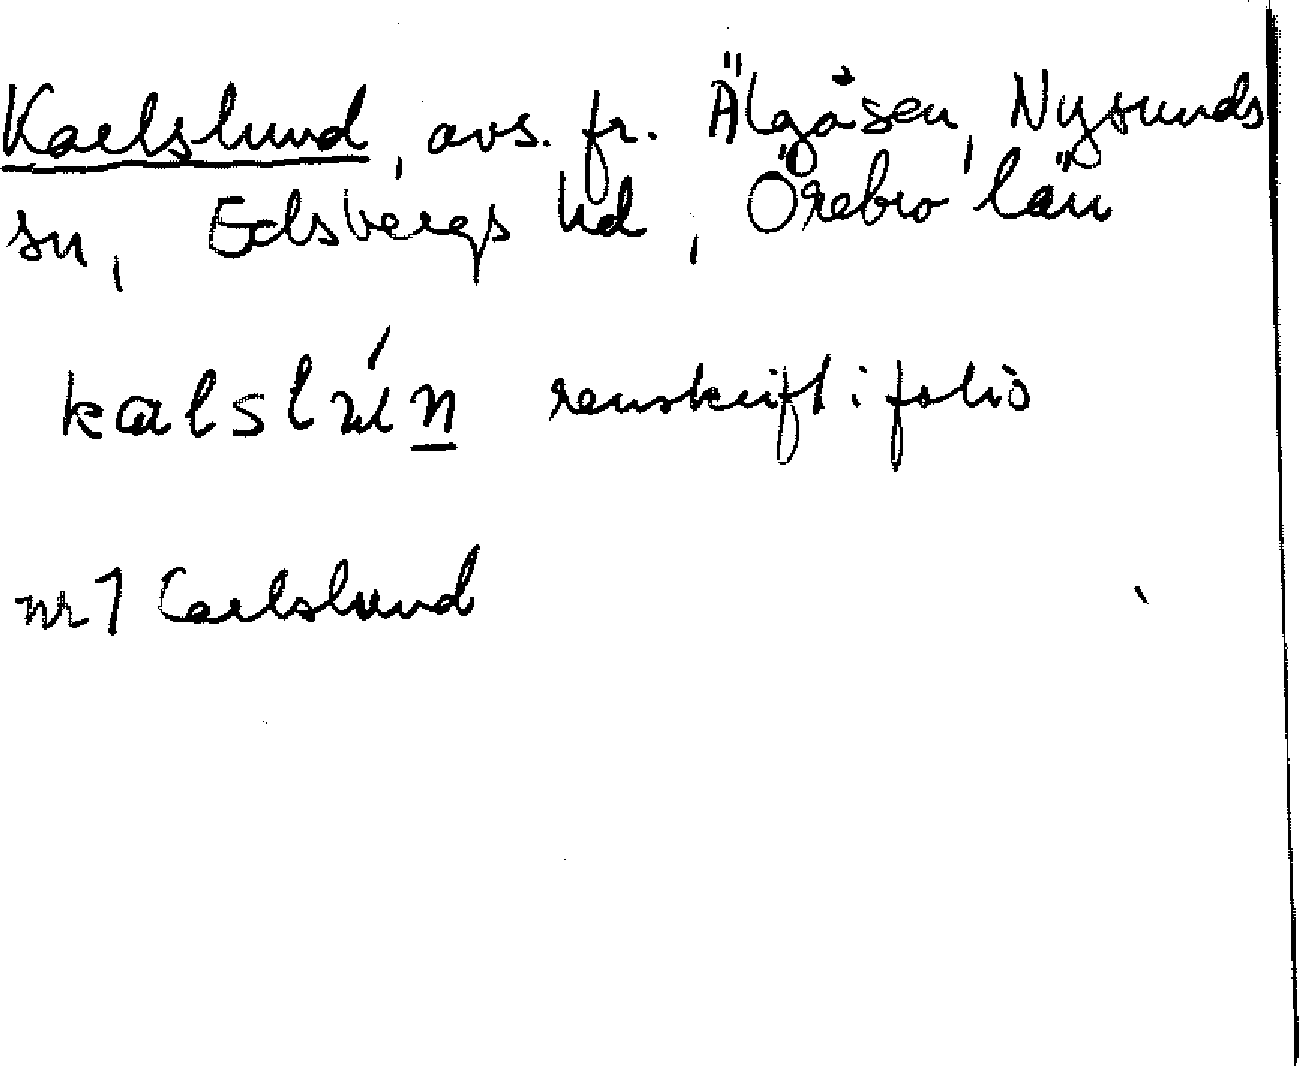 Karlslund, avs. fr. Älgåsen, Nysunds
sn, Edsbergs hd, Örebro län
renskrift i folio
nr 1 Carlslund